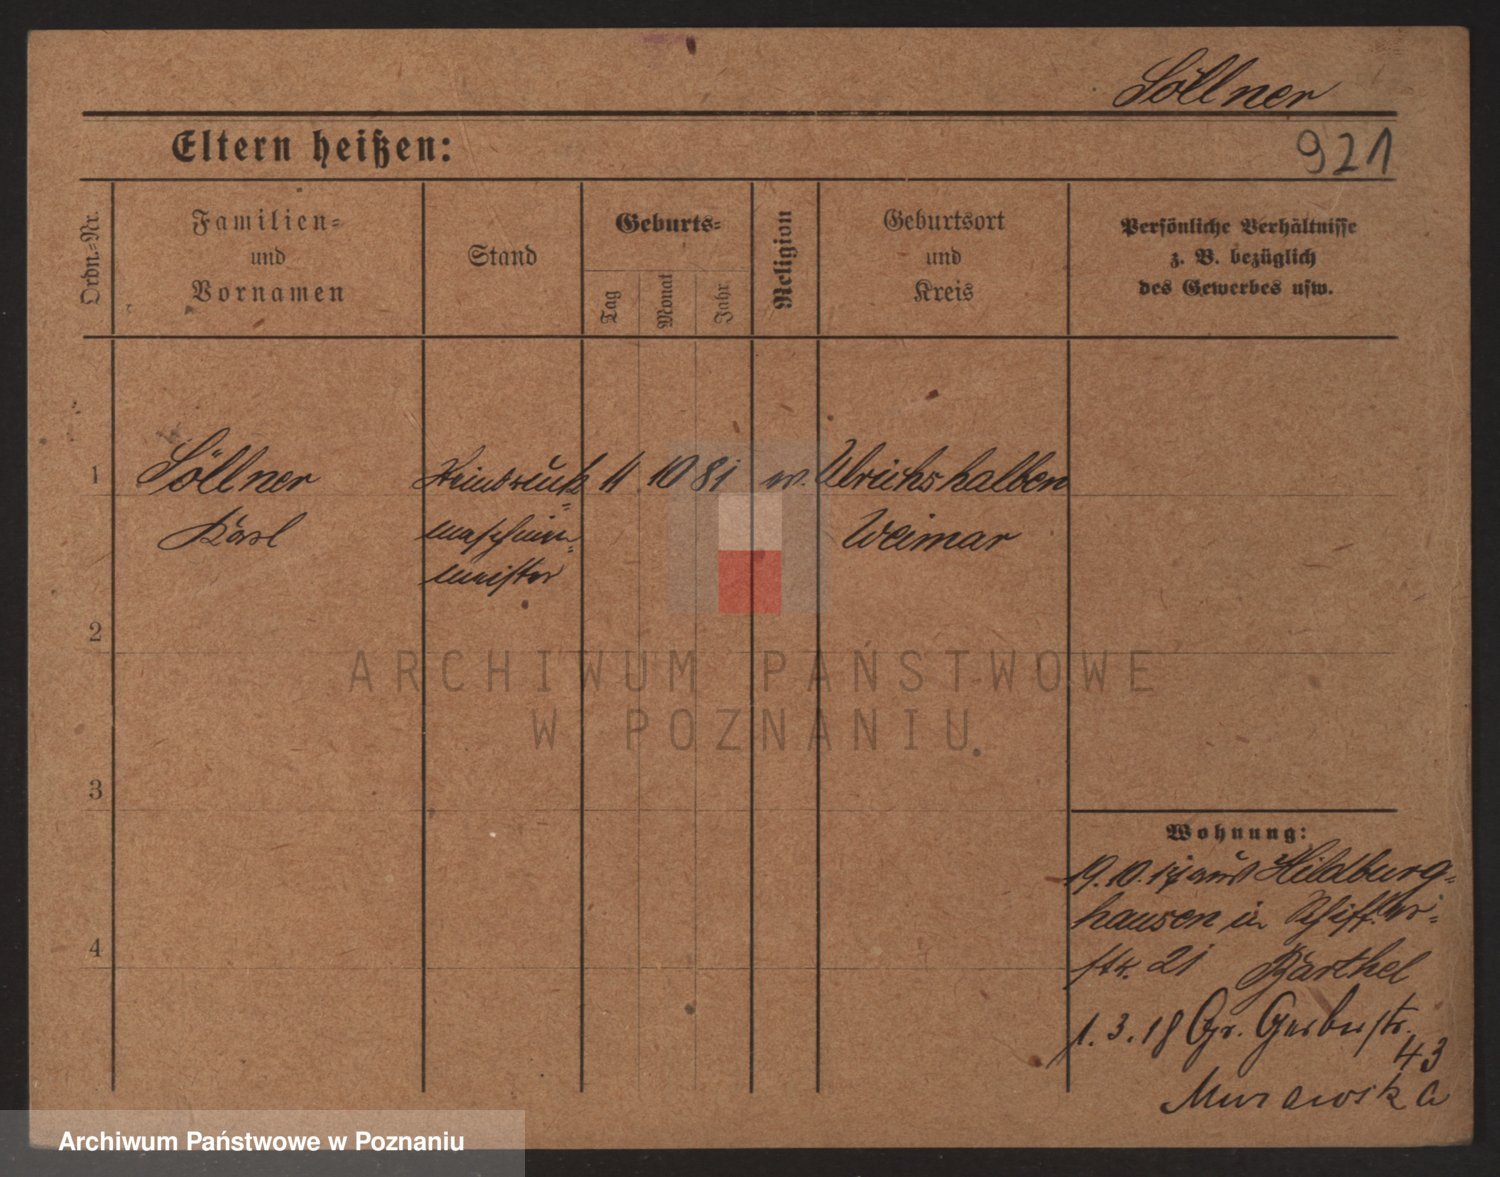 Söllner
921
Eltern heißen:
Ordn.-Nr.
Familien-
und
Vornamen
Stand
Geburts-
Tag
Monat
Jahr
Religion
Geburtsort
und
Kreis
Persönliche Verhältnisse
z. B. bezüglich
des Gewerbes usw.
1
Söllner
Karl
Steindruck-
maschinen-
meister
11
10
81
ev.
Ulrichshalben
Weimar
2
3
4
Wohnung:
19.10.17 aus Hildburg-
hausen in
str. 21 Barthel
1.3.18 Gr. Gerberstr.
43
Murawska
ARCHIWUM PAŃSTWOWE
W POZNANIU
Archiwum Państwowe w Poznaniu